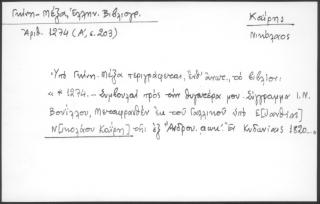 Γκίνη-Μέξα, Ἑλλην. Βιβλιογρ.
Ἀριθ. 1274 (Α', σ. 203)
Καΐρης
Νικόλαος
Ὑπὸ Γκίνη-Μέξα περιγράφεται, ὑπ' ἀριθ., τὸ βιβλίον:
«* 1274.- Συμβουλαὶ πρὸς τὴν θυγατέρα μου. Σύγγραμμα Ι.Ν.
Βουΐλλου, Μεταφρασθὲν ἐκ τοῦ Γαλλικοῦ ὑπὸ Ε[ὐανθίας]
Ν[ικολάου Καΐρη] τῆς ἐξ Ἄνδρου. Ἐν Κυδωνίαις 1820...»